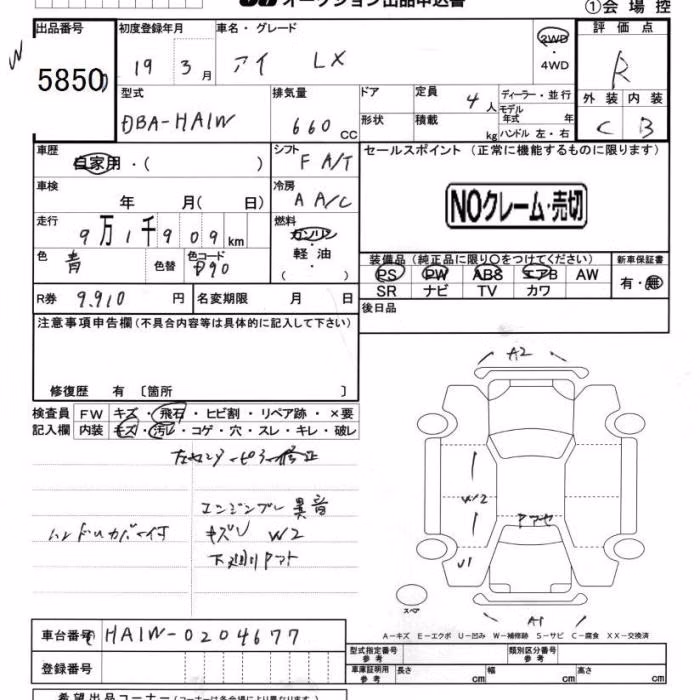 オークション出品申込書
①会場控
出品番号 初度登録年月 車名・グレード 2WD 評価点
5850 19年 3月 アイ LX ・4WD R
型式 排気量 ドア 定員 ディーラー・並行 外装 内装
DBA-HA1W 660CC 4人 モデル年式 年 C B
形状 積載 kg ハンドル 左・右
車歴 自家用・( ) シフト F A/T セールスポイント (正常に機能するものに限ります)
車検 年 月( 日) 冷房 A A/C NOクレーム・売切
走行 9万1千909km 燃料 ガソリン・軽油・( )
色 青 色替 色コード D90 装備品 (純正品に限り○をつけてください) 新車保証書
PS PW ABS エアB AW 有・無
R券 9,910円 名変期限 月 日 SR ナビ TV カワ
注意事項申告欄(不具合内容等は具体的に記入して下さい) 後日品
修復歴 有 〔箇所 〕
A2
検査員 FW キズ・飛石・ヒビ割・リペア跡・×要
記入欄 内装 キズ・汚レ・コゲ・穴・スレ・キレ・破レ
左センターピラー修正
エンジンブレ異音
W2
ハンドルカバー付 キズU W2
下廻りサビ
U1
スペア
A1
A-キズ E-エクボ U-凹み W-補修跡 S-サビ C-腐食 XX-交換済
車台番号 HA1W-0204677
登録番号
型式指定番号 参考 類別区分番号 参考
車庫証明用 参考 長さ cm 幅 cm 高さ cm
希望出品コーナー(コーナーは各会場により異なります)